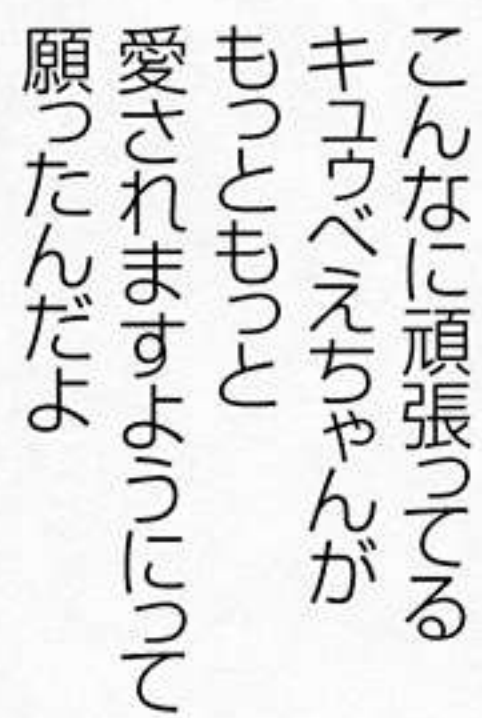 こんなに頑張ってる
キュゥべえちゃんが
もっともっと
愛されますようにって
願ったんだよ